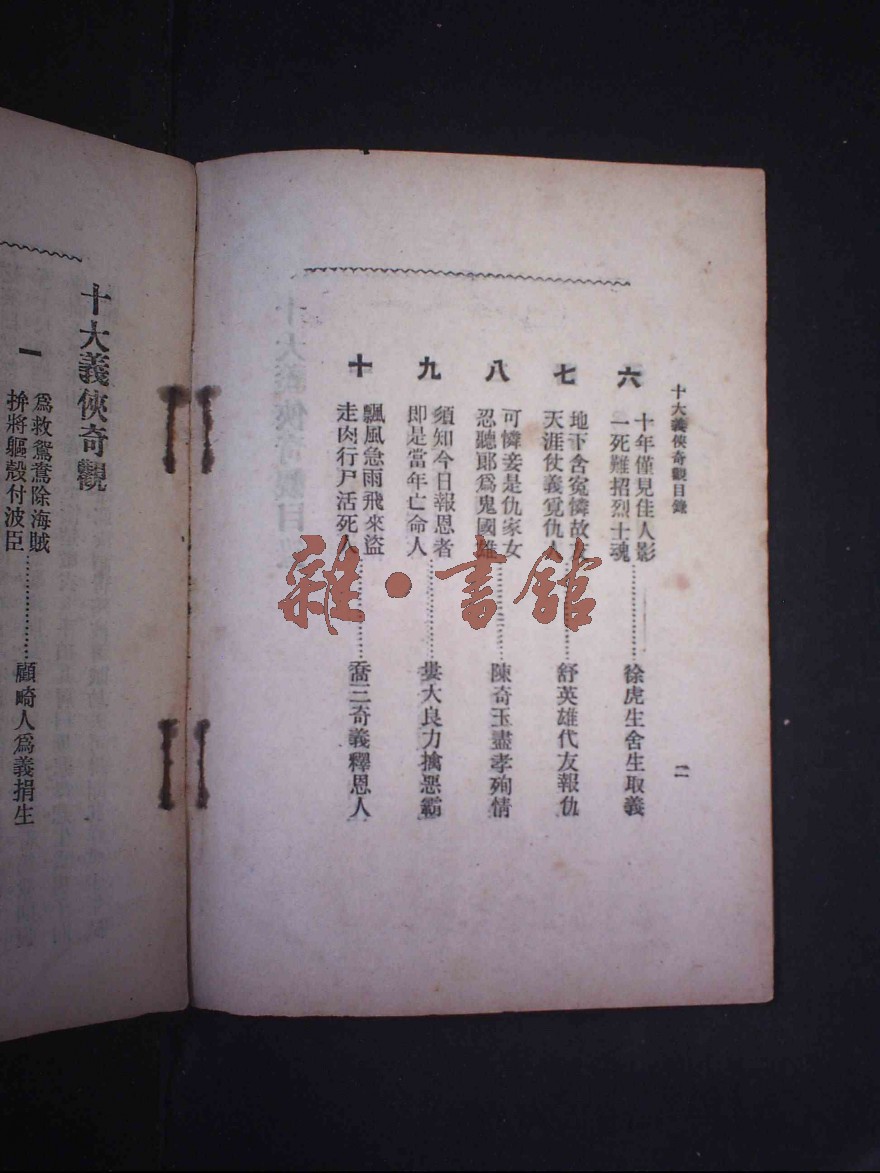 十大義俠奇觀目錄
六
十年僅見佳人影
一死難招烈士魂
徐虎生舍生取義
七
地下含冤憐故
天涯仗義覓仇人
舒英雄代友報仇
八
可憐妾是仇家女
忍聽郎爲鬼國雄
陳奇玉盡孝殉情
九
須知今日報恩者
即是當年亡命人
婁大良力擒惡霸
十
飄風急雨飛來盜
走肉行尸活死人
喬三奇義釋恩人
二
十大義俠奇觀
一
爲救鴛鴦除海賊
拚將軀殼付波臣
顧畸人爲義捐生
雜·書館